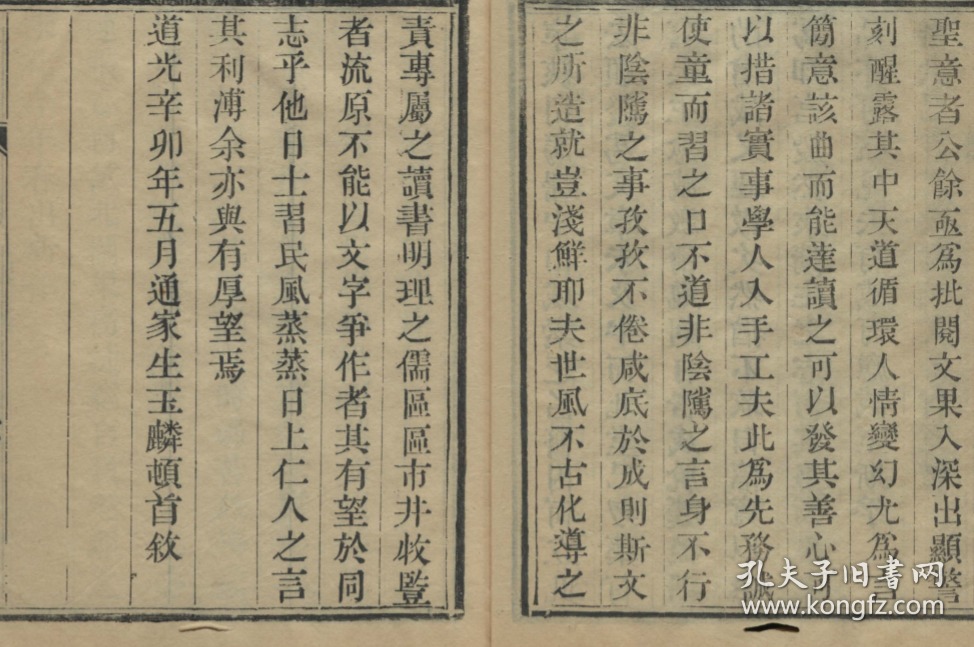 聖意者公餘亟為批閱文果入深出顯警
刻醒露其中天道循環人情變幻尤為
簡意該曲而能達讀之可以發其善心可
以措諸實事學人入手工夫此為先務誠
使童而習之口不道非陰隲之言身不行
非陰隲之事孜孜不倦咸底於成則斯文
之所造就豈淺鮮耶夫世風不古化導之
責專屬之讀書明理之儒區區市井牧豎
者流原不能以文字爭作者其有望於同
志乎他日士習民風蒸蒸日上仁人之言
其利溥余亦與有厚望焉
道光辛卯年五月通家生玉麟頓首敘
孔夫子旧书网
www.kongfz.com